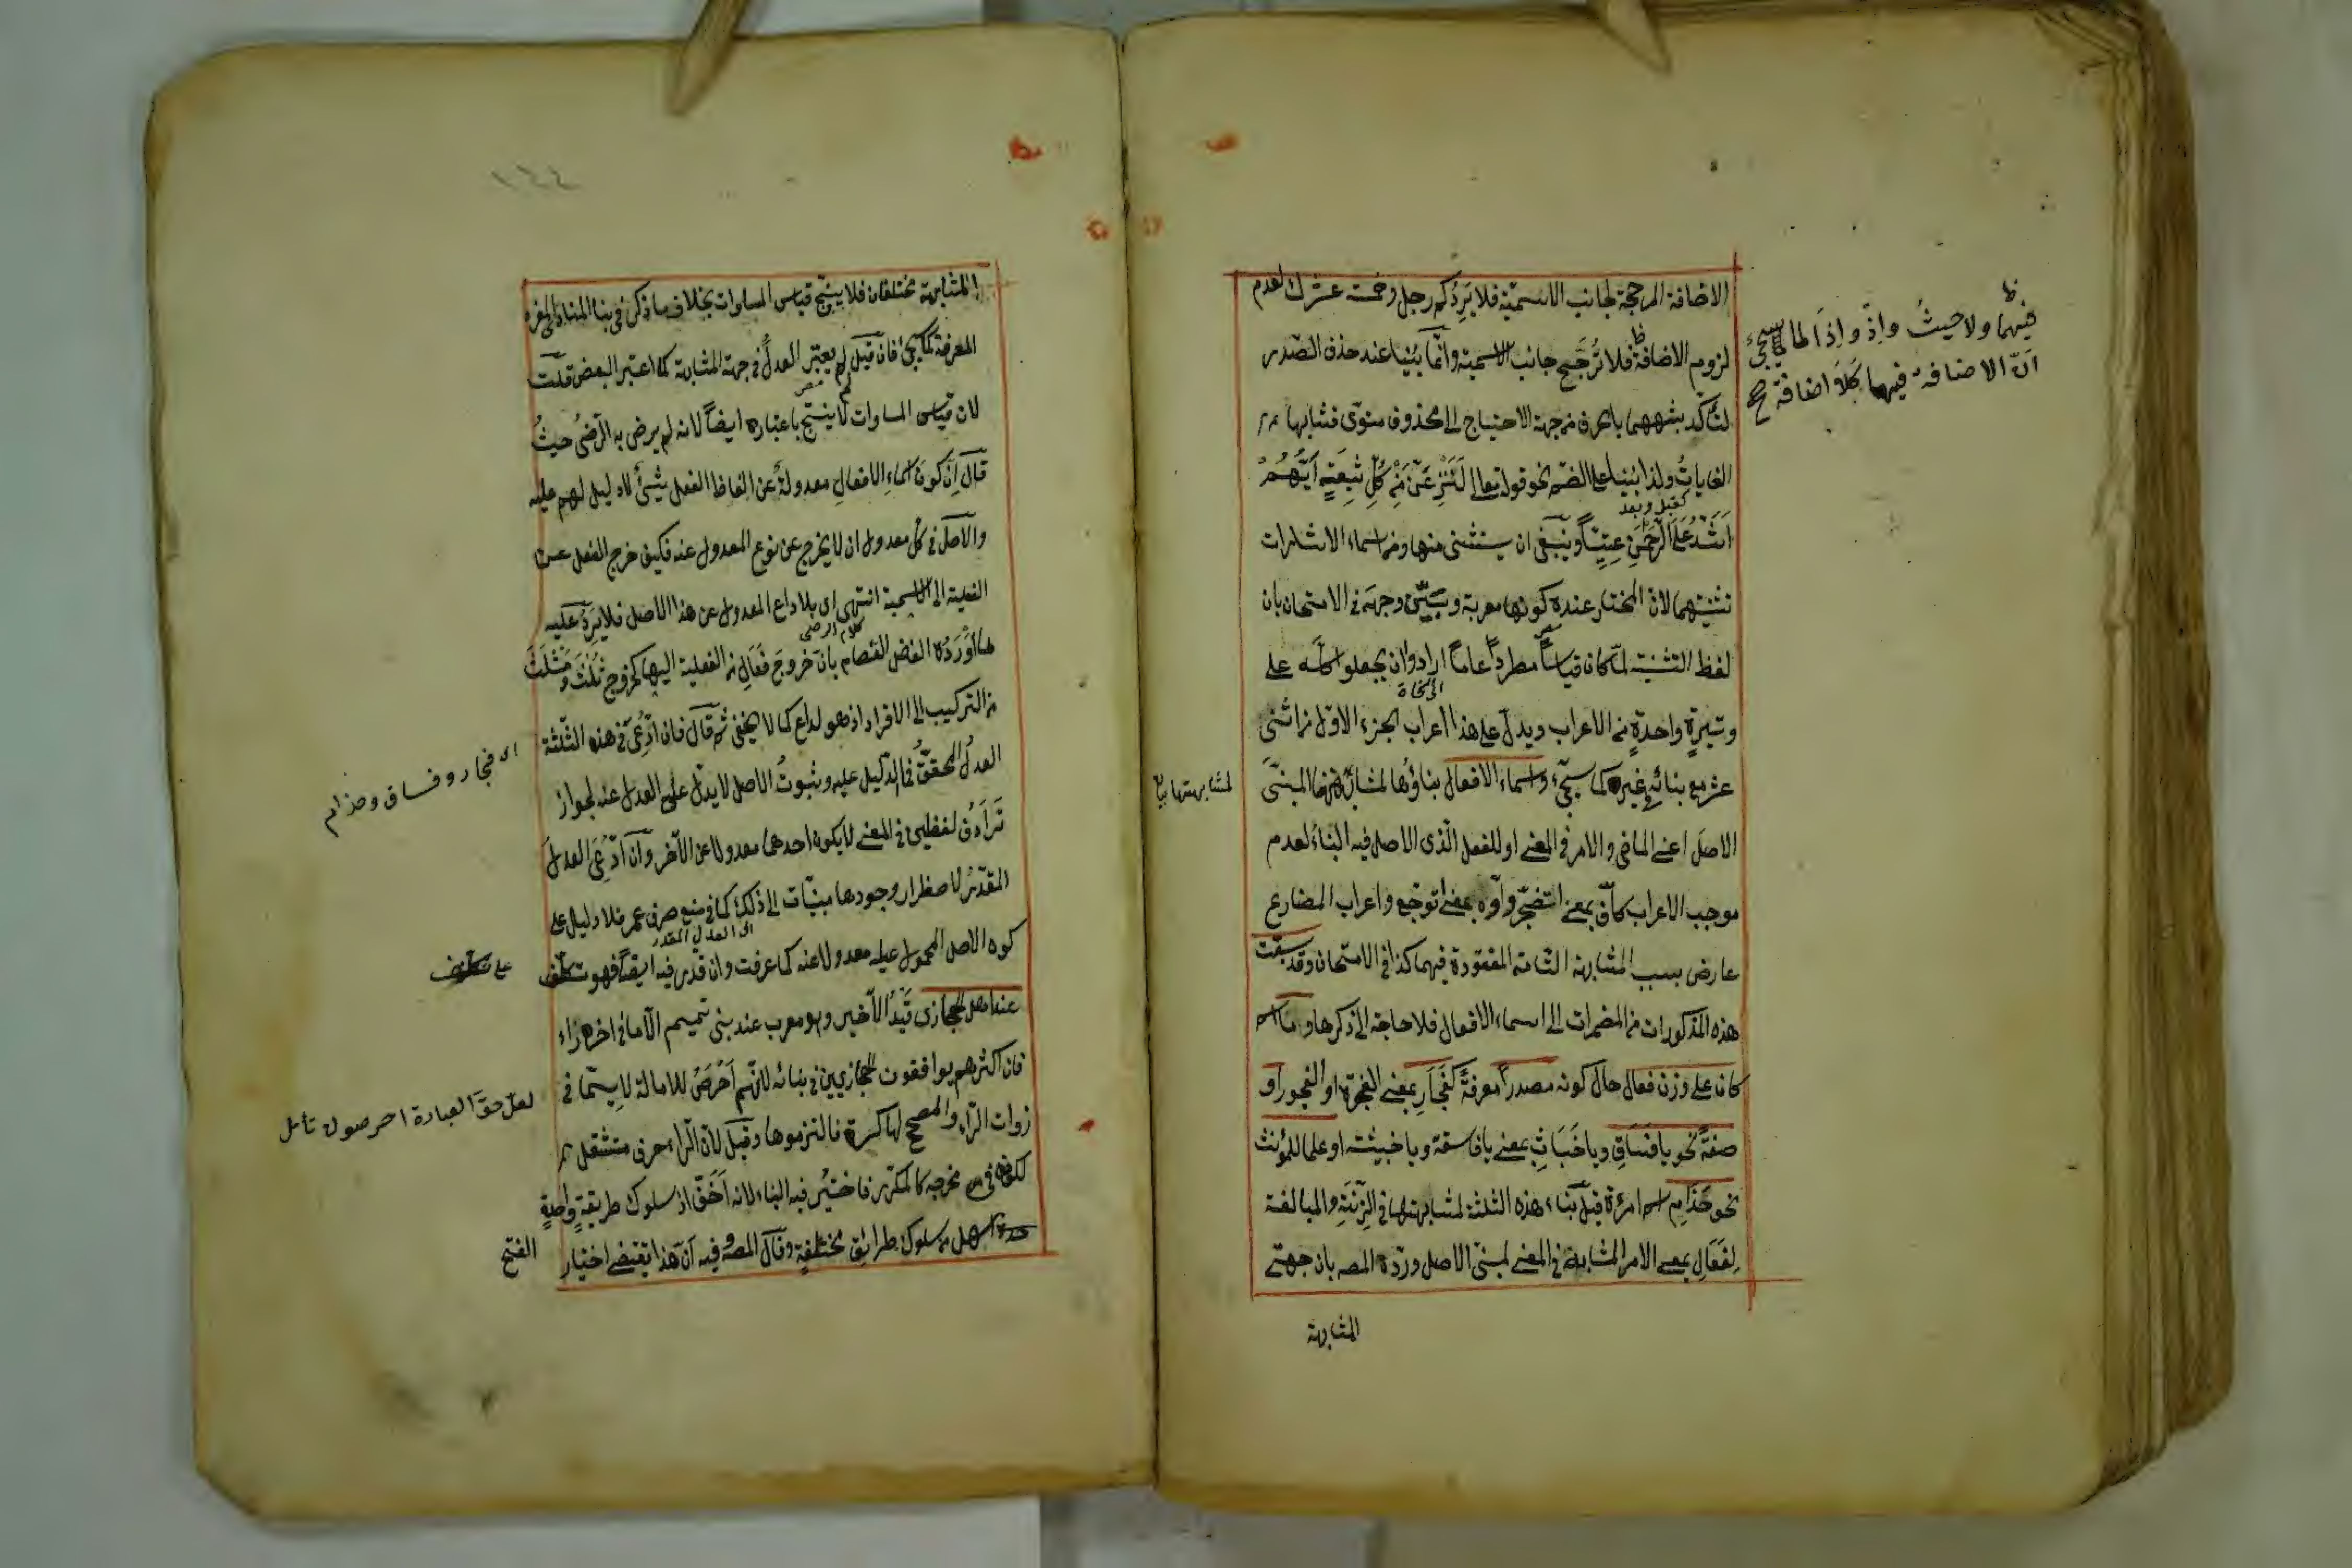 الاضافة المرجحة لجانب الاسميّة فلا يَرِدُ كم رجل وخمسة عشرك لعدم
لزوم الاضافة فلا تُرَجَّح جانب الاسمية وانّما بُنيا عند حذف الصّدر
لتأكّد شبههما بالحرف من جهة الاحتياج الى محذوف منوىّ فشابها
الغاياتِ ولذا بُنيا على الضمّ نحو قوله تعالى لَنَنْزِعَنَّ مِنْ كُلِّ شِيعَةٍ اَيُّهُمْ
كقبل وبعد
اَشَدُّ عَلَى الرَّحْمٰنِ عِتِيًّا وينبغى ان يستثنى منها ومن اسماء الاشارات
تثنيتهما لان المختار عنده كونها معربة وبيّن وجهه فى الامتحان بان
لفظ التثنية لمّا كان قياسا مطرداً عاماً ارادوا ان يجعلوا كله على
اى النحاة
وتيرةٍ واحدةٍ من الاعراب ويدلّ على هذا اعراب الجزء الاوّل من اثنى
عشر مع بنائه غيره كما سيجئ واسماء الافعال بناؤها لمشابهتها المبنىَّ
الاصل اعنى الماضى والامر فى المعنى او للفعل الّذى الاصل فيه البناء لعدم
موجب الاعراب كأفّ بمعنى اتضجّر واوّه بمعنى اتوجّع واعراب المضارع
عارض بسبب المشابهة التامة المفقودة فيهما كذا فى الامتحان وقد سبقت
هذه المذكورات من المضمرات الى اسماء الافعال فلا حاجة الى ذكرها وما
كان على وزن فعال حال كونه مصدراً معرفةً كفَجَارِ بمعنى الفجرة او الفجور او
صفةً نحو يا فَسَاقِ ويا خَبَاثِ بمعنى يا فاسقة ويا خبيثة او علما للمؤنث
نحو حَذَامِ اسم امرءة قيل بناء هذه الثلثة لمشابهتها فى الزِّنَةِ والمبالغة
لِفَعَالِ بمعنى الامر المشابهة فى المعنى لمبنىّ الاصل وردّه المصـ بان جهتى
المشابهة
فيهما ولا حيثُ واِذْ واِذَا لما سيجئ
انّ الاضافة فيهما كَلَا اضافة
لمشابهتها
١٤٤
المشابهة مختلفان فلا ينتج قياس المساوات بخلاف ما ذكر فى بناء المنادى المفرد
المعرفة كما سيجئ فان قيل لم يعتبر العدلُ فى جهة المشابهة كما اعتبر البعض قلت
لان قياس المساوات لا ينتج باعتباره ايضاً لانه لم يرض به الرّضىُّ حيثُ
قال اِنّ كون اسماء الافعالِ معدولةً عن الفاظ الفعل شئٌ لا دليل لهم عليه
والاصل فى كل معدول ان لا يخرج عن نوع المعدول عنه فكيف خرج الفعل عن
الفعلية الى الاسمية انتهى اى بلا داع العدول عن هذا الاصل فلا يَرِدُ عليه
كلام الرضى
ما اَوْرَدَه الفاضل العصام بانّ خروجَ فَعَالِ من الفعلية اليها كخروج ثُلَثَ ومَثْلَثَ
من التركيب الى الافراد اذ هو لداع كما لا يخفى ثم قال فان ادُّعِىَ فى هذه الثلثة
العدلُ المحققُ فما الدّليل عليه وثبوتُ الاصل لا يدلّ على العدل عنه لجواز
تَرَادُف لفظين فى المعنى لا يكون احدهما معدولا عن الآخر وان ادُّعِىَ العدل
المقدّر لاضطرار وجودها مبنيّات الى ذلك كما فى منع صرف عمر فلا دليل على
اى العدل المقدر
كون الاصل المحمول عليه معدولا عنه كما عرفت وان قدر فيه ايضاً فهو تكلّف
عند اهل الحجاز قَيْدُ الاخير وهو معرب عند بنى تميم الا ما فى اخره راء
فان اكثرهم يوافقون الحجازيين فى بنائه لانّهم اَحْرَصُ للامالة لا سيّما فى
ذوات الرّاء والمصحح لها كسرة فالتزموها وقيل لان الراء حرف مستثقل
لكونه فى مخرجه كالمكرّر فاختير فيه البناء لانه اَخَفّ اذ سلوك طريقةٍ واحدةٍ
اسهل من سلوك طرائق مختلفةٍ وقال المصـ وفيه انّ هذا يقتضى اختيار
الفتح
اى فجار وفساق وحذام
لعلّ حقّ العبارة احرصون تأمل